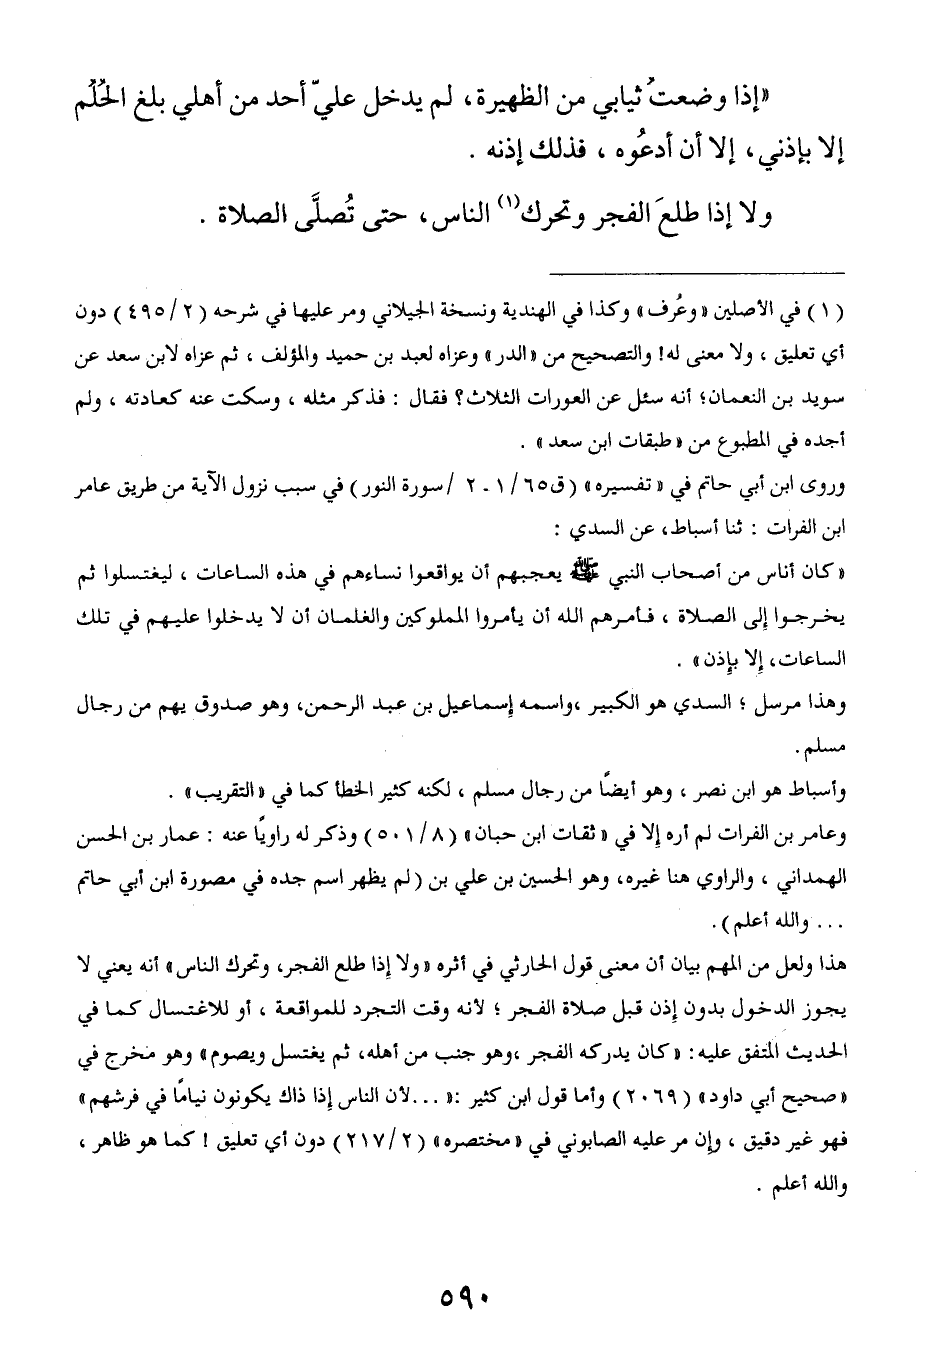 «إذا وضعتُ ثيابي من الظهيرة، لم يدخل عليّ أحد من أهلي بلغ الحُلُم
إلا بإذني، إلا أن أدعُوه ، فذلك إذنه .
ولا إذا طلعَ الفجر وتحرك(١) الناس، حتى تُصلَّى الصلاة .
(١) في الأصلين «وعُرف» وكذا في الهندية ونسخة الجيلاني ومر عليها في شرحه (٢/ ٤٩٥) دون
أي تعليق ، ولا معنى له! والتصحيح من «الدر» وعزاه لعبد بن حميد والمؤلف ، ثم عزاه لابن سعد عن
سويد بن النعمان؛ أنه سئل عن العورات الثلاث؟ فقال : فذكر مثله ، وسكت عنه كعادته ، ولم
أجده في المطبوع من «طبقات ابن سعد» .
وروى ابن أبي حاتم في «تفسيره» (ق٦٥/ ١ ـ ٢ /سورة النور) في سبب نزول الآية من طريق عامر
ابن الفرات : ثنا أسباط، عن السدي :
«كان أناس من أصحاب النبي ﷺ يعجبهم أن يواقعوا نساءهم في هذه الساعات ، ليغتسلوا ثم
يخرجوا إلى الصلاة ، فأمرهم الله أن يأمروا المملوكين والغلمان أن لا يدخلوا عليهم في تلك
الساعات، إلا بإذن» .
وهذا مرسل ؛ السدي هو الكبير ،واسمه إسماعيل بن عبد الرحمن، وهو صدوق يهم من رجال
مسلم.
وأسباط هو ابن نصر ، وهو أيضًا من رجال مسلم ، لكنه كثير الخطأ كما في «التقريب» .
وعامر بن الفرات لم أره إلا في «ثقات ابن حبان» (٨/ ٥٠١) وذكر له راويًا عنه : عمار بن الحسن
الهمداني ، والراوي هنا غيره، وهو الحسين بن علي بن (لم يظهر اسم جده في مصورة ابن أبي حاتم
... والله أعلم).
هذا ولعل من المهم بيان أن معنى قول الحارثي في أثره «ولا إذا طلع الفجر، وتحرك الناس» أنه يعني لا
يجوز الدخول بدون إذن قبل صلاة الفجر ؛ لأنه وقت التجرد للمواقعة ، أو للاغتسال كما في
الحديث المتفق عليه: «كان يدركه الفجر ،وهو جنب من أهله، ثم يغتسل ويصوم» وهو مخرج في
«صحيح أبي داود» (٢٠٦٩) وأما قول ابن كثير :«...لأن الناس إذا ذاك يكونون نيامًا في فرشهم»
فهو غير دقيق ، وإن مر عليه الصابوني في «مختصره» (٢/ ٢١٧) دون أي تعليق ! كما هو ظاهر ،
والله أعلم .
٥٩٠